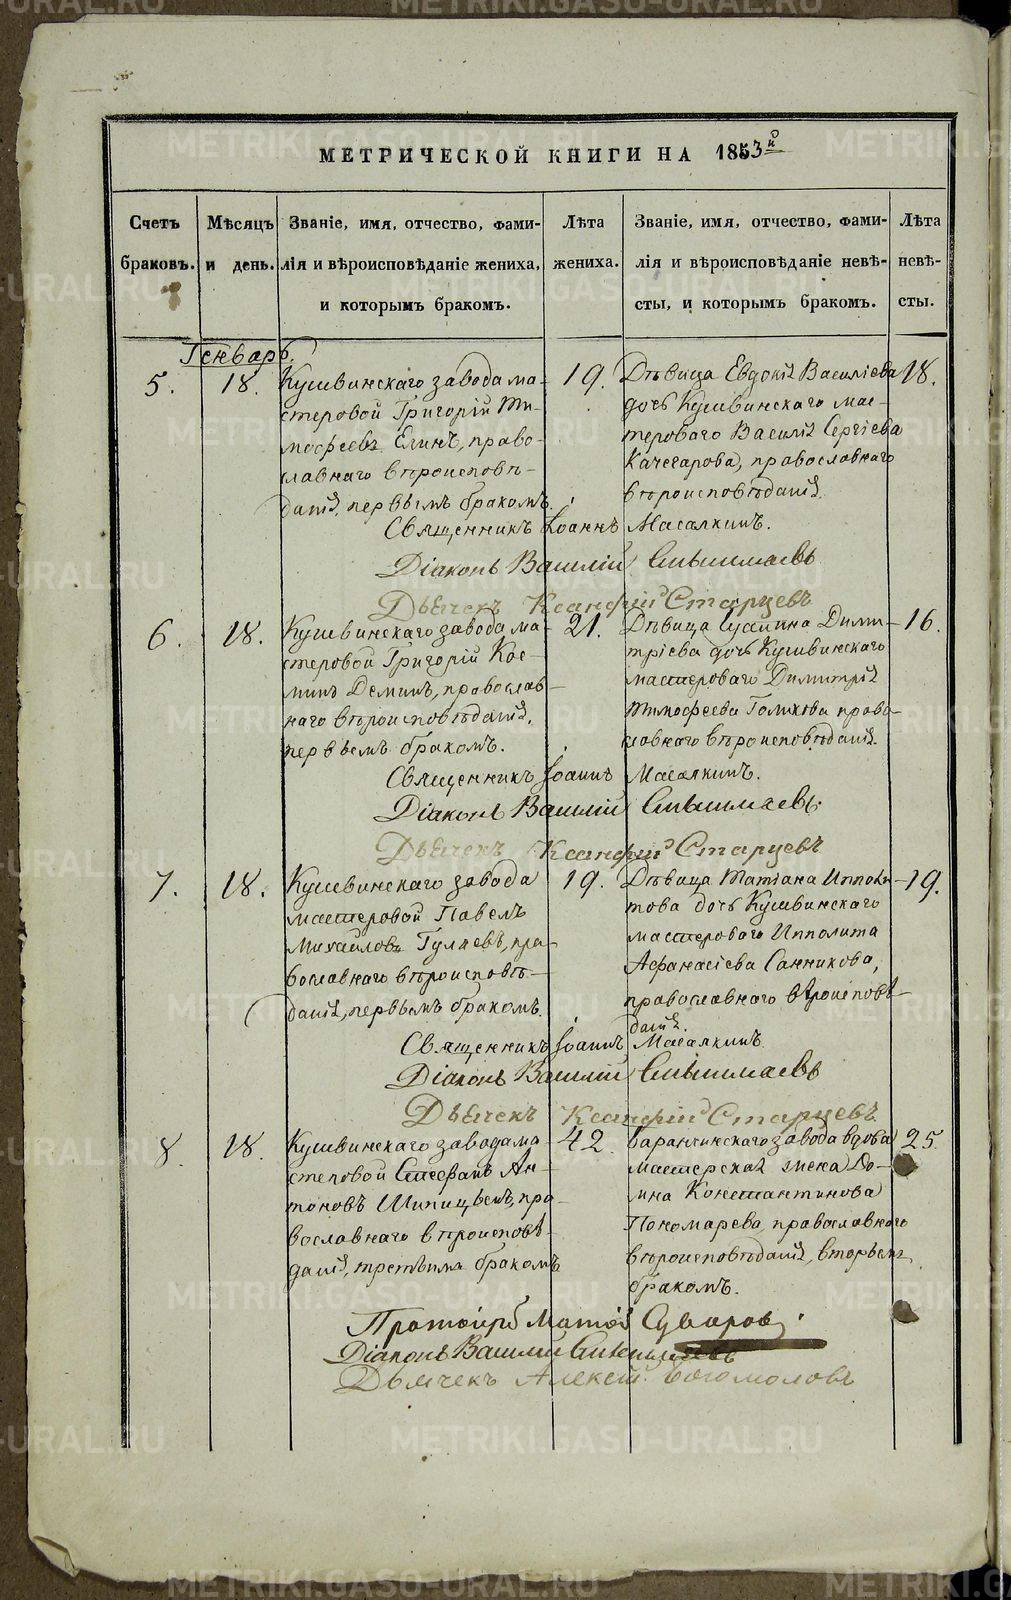 МЕТРИЧЕСКОЙ КНИГИ НА 1853й
Счетъ браковъ.
Мѣсяцъ и день.
Званіе, имя, отчество, фами-
лія и вѣроисповѣданіе жениха,
и которымъ бракомъ.
Лѣта жениха.
Званіе, имя, отчество, фами-
лія и вѣроисповѣданіе невѣ-
сты, и которымъ бракомъ.
Лѣта невѣ-
сты.
Генварь.
5.
18.
Кушвинскаго завода ма-
стеровой Григорій Ти-
мофеевъ Елинъ, право-
славнаго вѣроисповѣ-
данія, первымъ бракомъ.
19.
Дѣвица Евдокія Василіева
дочь Кушвинскаго мас-
тероваго Василія Сергіева
Качегарова, православнаго
вѣроисповѣданія.
18.
Священникъ Іоаннъ Масалкинъ.
Діаконъ Василій
Дьячекъ Ксанфій Старцевъ
6.
18.
Кушвинскаго завода ма-
стеровой Григорій Кос-
минъ Деминъ, православ-
наго вѣроисповѣданія,
первымъ бракомъ.
21.
Дѣвица Дими-
тріева дочь Кушвинскаго
мастероваго Димитрія
Тимофеева Голикова право-
славнаго вѣроисповѣданія.
16.
Священникъ Іоаннъ Масалкинъ.
Діаконъ Василій
Дьячекъ Ксанфій Старцевъ
7.
18.
Кушвинскаго завода
мастеровой Павелъ
Михайловъ Гуляевъ, пра-
вославнаго вѣроисповѣ-
данія, первымъ бракомъ.
19.
Дѣвица Татіана Ипполи-
това дочь Кушвинскаго
мастероваго Ипполита
Афанасіева Санникова,
православнаго вѣроисповѣ-
данія.
19.
Священникъ Іоаннъ Масалкинъ
Діаконъ Василій
Дьячекъ Ксанфій Старцевъ
8.
18.
Кушвинскаго завода ма-
стеровой Стефанъ Ан-
тоновъ Шипицынъ, пра-
вославнаго вѣроисповѣ-
данія, третьимъ бракомъ
42.
Баранчинскаго завода вдова
мастерская жена До-
мна Константинова
Пономарева, православнаго
вѣроисповѣданія, вторымъ
бракомъ.
25.
Протоіерей Матөій Суваровъ.
Діаконъ Василій
Дьячекъ Алексій Богомоловъ
METRIKI.GASO-URAL.RU